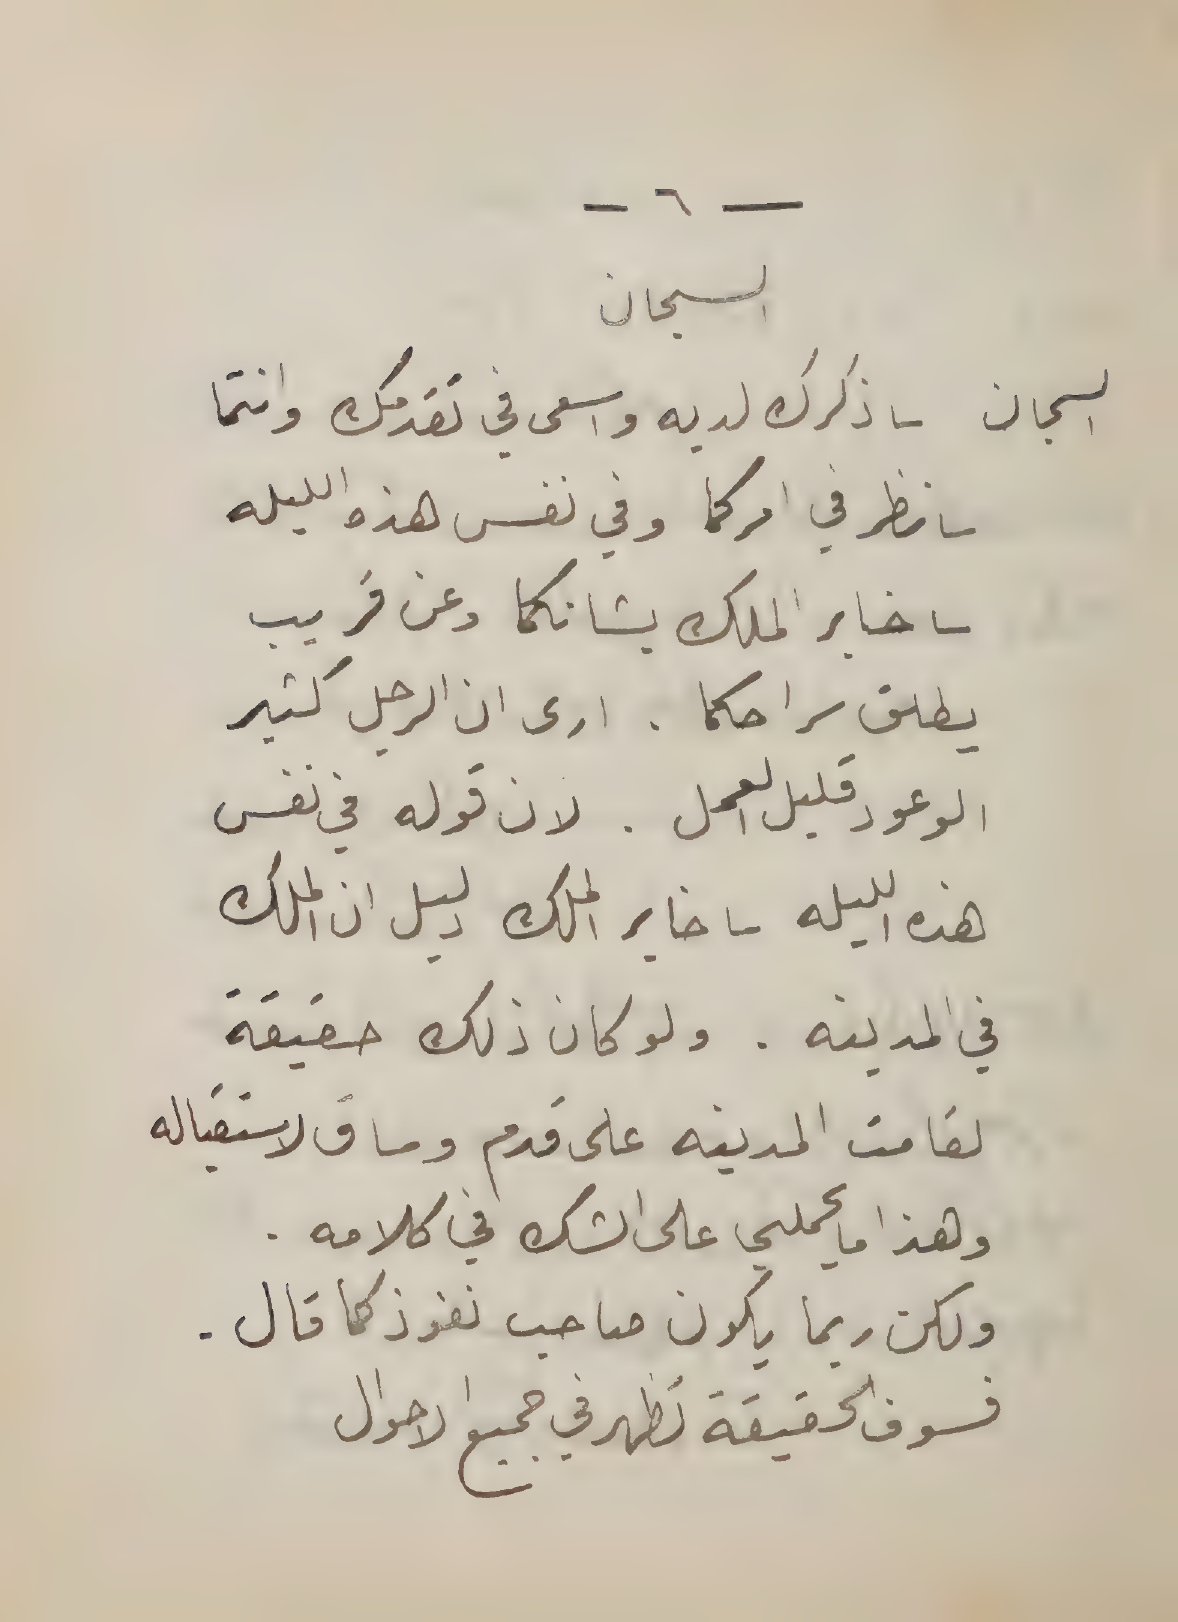 — ٦ —
السجان
السجان ساذكرك لديه واسعى في تقدمك وانتما
سانظر في امركما وفي نفس هذه الليله
ساخابر الملك بشانكما وعن قريب
يطلق سراحكما . ارى ان الرجل كثير
الوعود قليل العمل . لان قوله في نفس
هذه الليله ساخابر الملك دليل ان الملك
في المدينه . ولو كان ذلك حقيقة
لقامت المدينه على قدم وساق لاستقباله
وهذا ما يحملني على الشك في كلامه .
ولكن ربما يكون صاحب نفوذ كما قال .
فسوف الحقيقة تظهر في جميع الاحوال